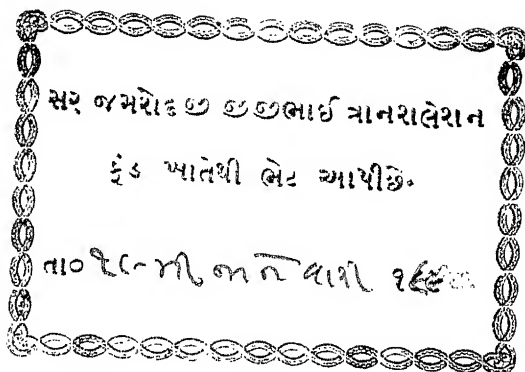 સર જમશેદજી જીજીભાઈ ત્રાનસલેશન
ફંડ ખાતેથી ભેટ આપીછે.
તા૦ ૧૮મી જાનેવારી